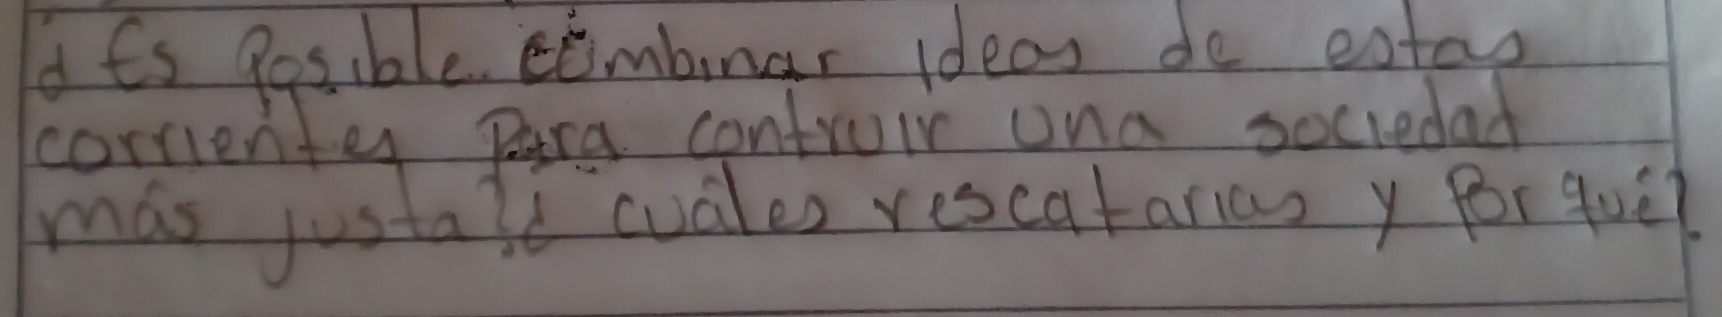 ¿Es Posible combinar ideas de estas
corrientes Para contruir una sociedad
más justa? ¿ cuáles rescatarias y Por qué?